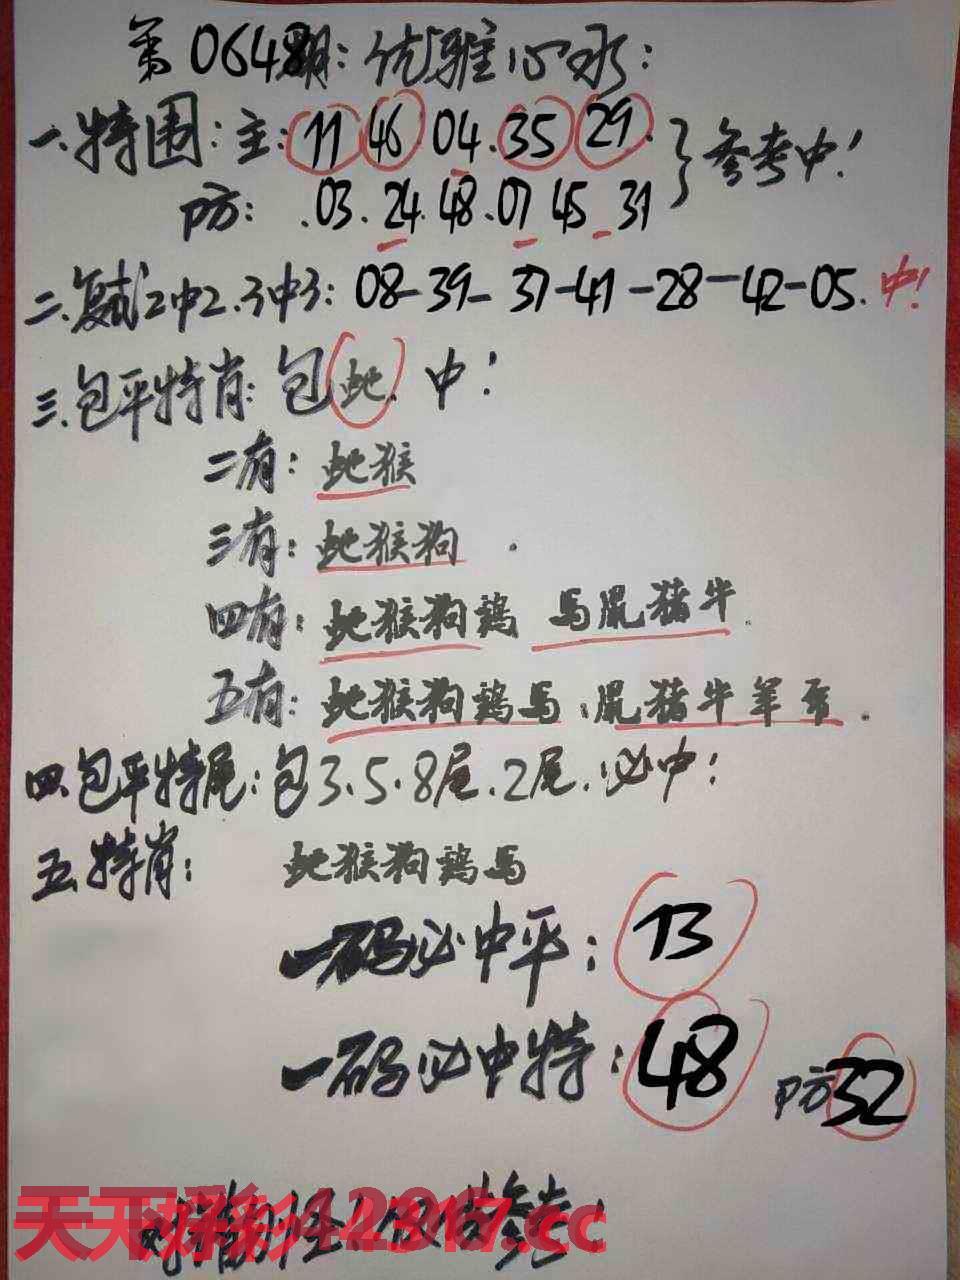 第0648期:优雅心水:
一.特围:主:11 46 04.35 29.}参考中!
防:.03.24.48.07 45 31
二.复试2中2.3中3:08-39-37-41-28-42-05.中!
三.包平特肖:包蛇.中!
二有:蛇猴
三有:蛇猴狗.
四有:蛇猴狗鸡 马鼠猪牛.
五有:蛇猴狗鸡马:鼠猪牛羊.
四.包平特尾:包3.5.8尾.2尾.必中!
五.特肖: 蛇猴狗鸡马
一码必中平:13
一码必中特:48 防32
天天彩 12317.cc
参考!